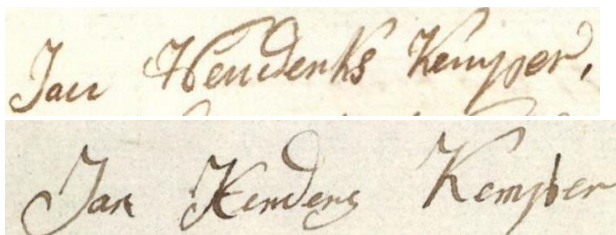 Jan Hendenks Kemper,
Jan Henderg Kemper